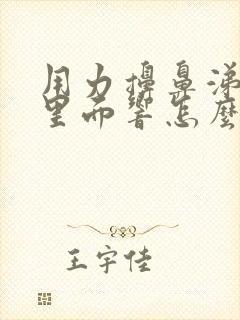 用力擤鼻涕
里面響怎麼
王宇佳